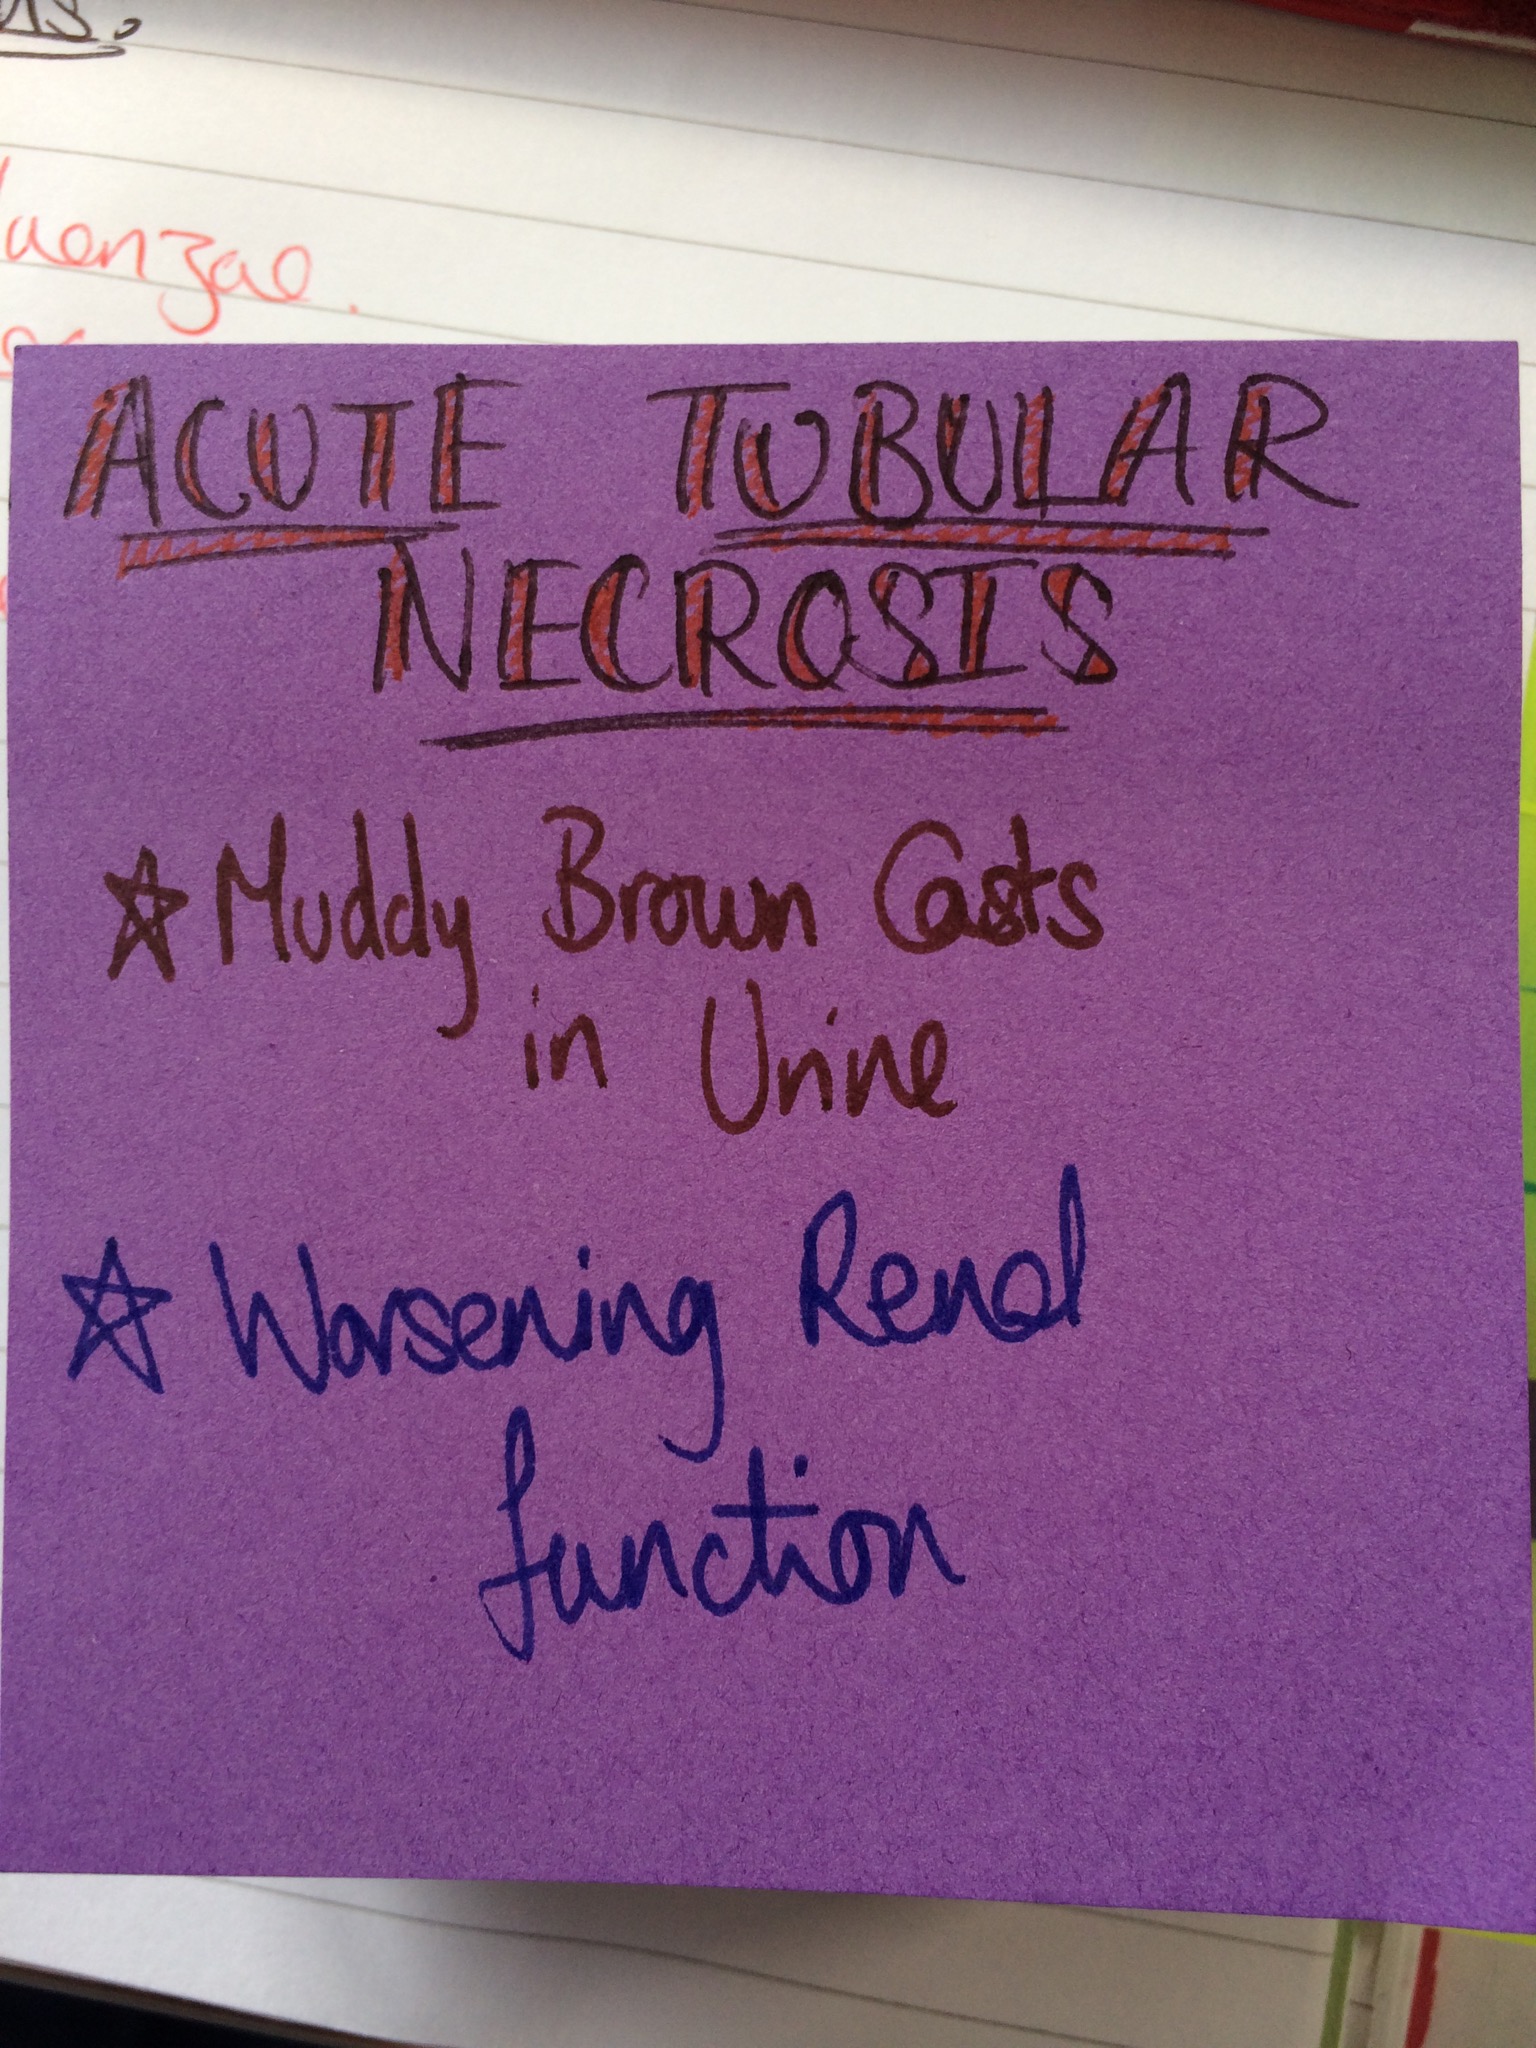 ACUTE TUBULAR
NECROSIS
☆ Muddy Brown Casts
in Urine
☆ Worsening Renal
function